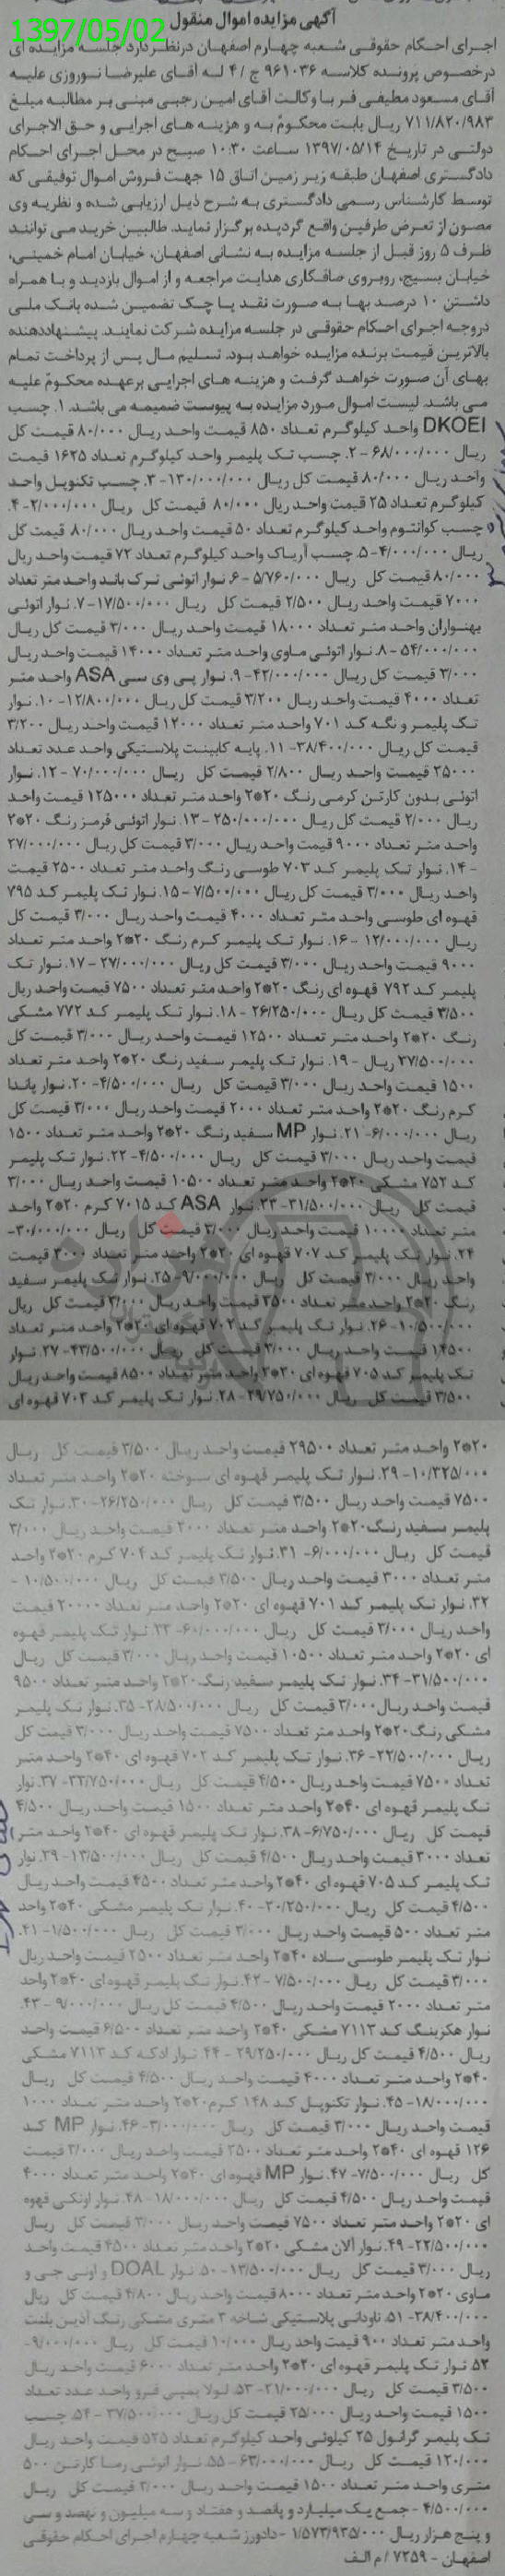 آگهی مزایده اموال منقول
1397/05/02
اجرای احکام حقوقی شعبه چهارم اصفهان درنظردارد جلسه مزایده ای
درخصوص پرونده کلاسه ۹۶۱۰۳۶ ج / ۴ له آقای علیرضا نوروزی علیه
آقای مسعود مطیفی فر با وکالت آقای امین رجبی مبنی بر مطالبه مبلغ
۷۱۱/۸۲۰/۹۸۳ ریال بابت محکوم به و هزینه های اجرایی و حق الاجرای
دولتی در تاریخ ۱۳۹۷/۰۵/۱۴ ساعت ۱۰:۳۰ صبح در محل اجرای احکام
دادگستری اصفهان طبقه زیر زمین اتاق ۱۵ جهت فروش اموال توقیفی که
توسط کارشناس رسمی دادگستری به شرح ذیل ارزیابی شده و نظریه وی
مصون از تعرض طرفین واقع گردیده برگزار نماید. طالبین خرید می توانند
ظرف ۵ روز قبل از جلسه مزایده به نشانی اصفهان، خیابان امام خمینی،
خیابان بسیج، روبروی صافکاری هدایت مراجعه و از اموال بازدید و با همراه
داشتن ۱۰ درصد بها به صورت نقد یا چک تضمین شده بانک ملی
دروجه اجرای احکام حقوقی در جلسه مزایده شرکت نمایند. پیشنهاددهنده
بالاترین قیمت برنده مزایده خواهد بود. تسلیم مال پس از پرداخت تمام
بهای آن صورت خواهد گرفت و هزینه های اجرایی برعهده محکوم علیه
می باشد. لیست اموال مورد مزایده به پیوست ضمیمه می باشد. ۱. چسب
DKOEI واحد کیلوگرم تعداد ۸۵۰ قیمت واحد ریال ۸۰/۰۰۰ قیمت کل
ریال ۶۸/۰۰۰/۰۰۰ - ۲. چسب تک پلیمر واحد کیلوگرم تعداد ۱۶۲۵ قیمت
واحد ریال ۸۰/۰۰۰ قیمت کل ریال ۱۳۰/۰۰۰/۰۰۰ - ۳. چسب تکنوپل واحد
کیلوگرم تعداد ۲۵ قیمت واحد ریال ۸۰/۰۰۰ قیمت کل ریال ۲/۰۰۰/۰۰۰ - ۴.
چسب کوانتوم واحد کیلوگرم تعداد ۵۰ قیمت واحد ریال ۸۰/۰۰۰ قیمت کل
ریال ۴/۰۰۰/۰۰۰ - ۵. چسب آریاک واحد کیلوگرم تعداد ۷۲ قیمت واحد ریال
۸۰/۰۰۰ قیمت کل ریال ۵/۷۶۰/۰۰۰ - ۶. نوار اتوئی ترک باند واحد متر تعداد
۷۰۰۰ قیمت واحد ریال ۲/۵۰۰ قیمت کل ریال ۱۷/۵۰۰/۰۰۰ - ۷. نوار اتوئی
بهنواران واحد متر تعداد ۱۸۰۰۰ قیمت واحد ریال ۳/۰۰۰ قیمت کل ریال
۵۴/۰۰۰/۰۰۰ - ۸. نوار اتوئی ماوی واحد متر تعداد ۱۴۰۰۰ قیمت واحد ریال
۳/۰۰۰ قیمت کل ریال ۴۲/۰۰۰/۰۰۰ - ۹. نوار پی وی سی ASA واحد متر
تعداد ۴۰۰۰ قیمت واحد ریال ۳/۲۰۰ قیمت کل ریال ۱۲/۸۰۰/۰۰۰ - ۱۰. نوار
تک پلیمر و نگه کد ۷۰۱ واحد متر تعداد ۱۲۰۰۰ قیمت واحد ریال ۳/۲۰۰
قیمت کل ریال ۳۸/۴۰۰/۰۰۰ - ۱۱. پایه کابینت پلاستیکی واحد عدد تعداد
۲۵۰۰۰ قیمت واحد ریال ۲/۸۰۰ قیمت کل ریال ۷۰/۰۰۰/۰۰۰ - ۱۲. نوار
اتوئی بدون کارتن کرمی رنگ ۲۰*۲ واحد متر تعداد ۱۲۵۰۰۰ قیمت واحد
ریال ۲/۰۰۰ قیمت کل ریال ۲۵۰/۰۰۰/۰۰۰ - ۱۳. نوار اتوئی قرمز رنگ ۲۰*۲
واحد متر تعداد ۹۰۰۰ قیمت واحد ریال ۳/۰۰۰ قیمت کل ریال ۲۷/۰۰۰/۰۰۰
- ۱۴. نوار تک پلیمر کد ۷۰۳ طوسی رنگ واحد متر تعداد ۲۵۰۰ قیمت
واحد ریال ۳/۰۰۰ قیمت کل ریال ۷/۵۰۰/۰۰۰ - ۱۵. نوار تک پلیمر کد ۷۹۵
قهوه ای طوسی واحد متر تعداد ۴۰۰۰ قیمت واحد ریال ۳/۰۰۰ قیمت کل
ریال ۱۲/۰۰۰/۰۰۰ - ۱۶. نوار تک پلیمر کرم رنگ ۲۰*۲ واحد متر تعداد
۹۰۰۰ قیمت واحد ریال ۳/۰۰۰ قیمت کل ریال ۲۷/۰۰۰/۰۰۰ - ۱۷. نوار تک
پلیمر کد ۷۹۲ قهوه ای رنگ ۲۰*۲ واحد متر تعداد ۷۵۰۰ قیمت واحد ریال
۳/۵۰۰ قیمت کل ریال ۲۶/۲۵۰/۰۰۰ - ۱۸. نوار تک پلیمر کد ۷۷۲ مشکی
رنگ ۲۰*۲ واحد متر تعداد ۱۲۵۰۰ قیمت واحد ریال ۳/۰۰۰ قیمت کل
۳۷/۵۰۰/۰۰۰ ریال - ۱۹. نوار تک پلیمر سفید رنگ ۲۰*۲ واحد متر تعداد
۱۵۰۰ قیمت واحد ریال ۳/۰۰۰ قیمت کل ریال ۴/۵۰۰/۰۰۰ - ۲۰. نوار پاندا
کرم رنگ ۲۰*۲ واحد متر تعداد ۲۰۰۰ قیمت واحد ریال ۳/۰۰۰ قیمت کل
ریال ۶/۰۰۰/۰۰۰ - ۲۱. نوار MP سفید رنگ ۲۰*۲ واحد متر تعداد ۱۵۰۰
قیمت واحد ریال ۳/۰۰۰ قیمت کل ریال ۴/۵۰۰/۰۰۰ - ۲۲. نوار تک پلیمر
کد ۷۵۲ مشکی ۲۰*۲ واحد متر تعداد ۱۰۵۰۰ قیمت واحد ریال ۳/۰۰۰
قیمت کل ریال ۳۱/۵۰۰/۰۰۰ - ۲۳. نوار ASA کد ۷۰۱۵ کرم ۲۰*۲ واحد
متر تعداد ۱۰۰۰۰ قیمت واحد ریال ۳/۰۰۰ قیمت کل ریال ۳۰/۰۰۰/۰۰۰ -
۲۴. نوار تک پلیمر کد ۷۰۷ قهوه ای ۲۰*۲ واحد متر تعداد ۳۰۰۰ قیمت
واحد ریال ۳/۰۰۰ قیمت کل ریال ۹/۰۰۰/۰۰۰ - ۲۵. نوار تک پلیمر سفید
رنگ ۲۰*۲ واحد متر تعداد ۳۵۰۰ قیمت واحد ریال ۳/۰۰۰ قیمت کل ریال
۱۰/۵۰۰/۰۰۰ - ۲۶. نوار تک پلیمر کد ۷۰۲ قهوه ای ۲۰*۲ واحد متر تعداد
۱۴۵۰۰ قیمت واحد ریال ۳/۰۰۰ قیمت کل ریال ۴۳/۵۰۰/۰۰۰ - ۲۷. نوار
تک پلیمر کد ۷۰۵ قهوه ای ۲۰*۲ واحد متر تعداد ۸۵۰۰ قیمت واحد ریال
۳/۵۰۰ قیمت کل ریال ۲۹/۷۵۰/۰۰۰ - ۲۸. نوار تک پلیمر کد ۷۰۳ قهوه ای
۲۰*۲ واحد متر تعداد ۲۹۵۰۰ قیمت واحد ریال ۳/۵۰۰ قیمت کل ریال
۱۰/۳۲۵/۰۰۰ - ۲۹. نوار تک پلیمر قهوه ای سوخته ۲۰*۲ واحد متر تعداد
۷۵۰۰ قیمت واحد ریال ۳/۵۰۰ قیمت کل ریال ۲۶/۲۵۰/۰۰۰ - ۳۰. نوار تک
پلیمر سفید رنگ ۲۰*۲ واحد متر تعداد ۲۰۰۰ قیمت واحد ریال ۳/۰۰۰
قیمت کل ریال ۶/۰۰۰/۰۰۰ - ۳۱. نوار تک پلیمر کد ۷۰۴ کرم ۲۰*۲ واحد
متر تعداد ۳۰۰۰ قیمت واحد ریال ۳/۵۰۰ قیمت کل ریال ۱۰/۵۰۰/۰۰۰ -
۳۲. نوار تک پلیمر کد ۷۰۱ قهوه ای ۲۰*۲ واحد متر تعداد ۲۰۰۰۰ قیمت
واحد ریال ۳/۰۰۰ قیمت کل ریال ۶۰/۰۰۰/۰۰۰ - ۳۳. نوار تک پلیمر قهوه
ای ۲۰*۲ واحد متر تعداد ۱۰۵۰۰ قیمت واحد ریال ۳/۰۰۰ قیمت کل ریال
۳۱/۵۰۰/۰۰۰ - ۳۴. نوار تک پلیمر سفید رنگ ۲۰*۲ واحد متر تعداد ۹۵۰۰
قیمت واحد ریال ۳/۰۰۰ قیمت کل ریال ۲۸/۵۰۰/۰۰۰ - ۳۵. نوار تک پلیمر
مشکی رنگ ۲۰*۲ واحد متر تعداد ۷۵۰۰ قیمت واحد ریال ۳/۰۰۰ قیمت کل
ریال ۲۲/۵۰۰/۰۰۰ - ۳۶. نوار تک پلیمر کد ۷۰۲ قهوه ای ۴۰*۲ واحد متر
تعداد ۷۵۰۰ قیمت واحد ریال ۴/۵۰۰ قیمت کل ریال ۳۳/۷۵۰/۰۰۰ - ۳۷. نوار
تک پلیمر قهوه ای ۴۰*۲ واحد متر تعداد ۱۵۰۰ قیمت واحد ریال ۴/۵۰۰
قیمت کل ریال ۶/۷۵۰/۰۰۰ - ۳۸. نوار تک پلیمر قهوه ای ۴۰*۲ واحد متر
تعداد ۳۰۰۰ قیمت واحد ریال ۴/۵۰۰ قیمت کل ریال ۱۳/۵۰۰/۰۰۰ - ۳۹. نوار
تک پلیمر کد ۷۰۵ قهوه ای ۴۰*۲ واحد متر تعداد ۴۵۰۰ قیمت واحد ریال
۴/۵۰۰ قیمت کل ریال ۲۰/۲۵۰/۰۰۰ - ۴۰. نوار تک پلیمر مشکی ۴۰*۲ واحد
متر تعداد ۵۰۰ قیمت واحد ریال ۳/۰۰۰ قیمت کل ریال ۱/۵۰۰/۰۰۰ - ۴۱.
نوار تک پلیمر طوسی ساده ۴۰*۲ واحد متر تعداد ۲۵۰۰ قیمت واحد ریال
۳/۰۰۰ قیمت کل ریال ۷/۵۰۰/۰۰۰ - ۴۲. نوار تک پلیمر قهوه ای ۴۰*۲ واحد
متر تعداد ۲۰۰۰ قیمت واحد ریال ۴/۵۰۰ قیمت کل ریال ۹/۰۰۰/۰۰۰ - ۴۳.
نوار هکزینگ کد ۷۱۱۳ مشکی ۴۰*۲ واحد متر تعداد ۶/۵۰۰ قیمت واحد
ریال ۴/۵۰۰ قیمت کل ریال ۲۹/۲۵۰/۰۰۰ - ۴۴. نوار ادکه کد ۷۱۱۳ مشکی
۴۰*۲ واحد متر تعداد ۴۰۰۰ قیمت واحد ریال ۴/۵۰۰ قیمت کل ریال
۱۸/۰۰۰/۰۰۰ - ۴۵. نوار تکنوپل کد ۱۴۸ کرم ۲۰*۲ واحد متر تعداد ۱۰۰۰
قیمت واحد ریال ۳/۰۰۰ قیمت کل ریال ۳/۰۰۰/۰۰۰ - ۴۶. نوار MP کد
۱۲۶ قهوه ای ۴۰*۲ واحد متر تعداد ۲۵۰۰ قیمت واحد ریال ۳/۰۰۰ قیمت
کل ریال ۷/۵۰۰/۰۰۰ - ۴۷. نوار MP قهوه ای ۴۰*۲ واحد متر تعداد ۴۰۰۰
قیمت واحد ریال ۴/۵۰۰ قیمت کل ریال ۱۸/۰۰۰/۰۰۰ - ۴۸. نوار اونکی قهوه
ای ۲۰*۲ واحد متر تعداد ۷۵۰۰ قیمت واحد ریال ۳/۰۰۰ قیمت کل ریال
۲۲/۵۰۰/۰۰۰ - ۴۹. نوار آلان مشکی ۲۰*۲ واحد متر تعداد ۴۵۰۰ قیمت واحد
ریال ۳/۰۰۰ قیمت کل ریال ۱۳/۵۰۰/۰۰۰ - ۵۰. نوار DOAL و اونی جی و
ماوی ۲۰*۲ واحد متر تعداد ۸۰۰۰ قیمت واحد ریال ۴/۸۰۰ قیمت کل ریال
۳۸/۴۰۰/۰۰۰ - ۵۱. ناودانی پلاستیکی شاخه ۳ متری مشکی رنگ آذین پلیت
واحد متر تعداد ۹۰۰ قیمت واحد ریال ۱۰/۰۰۰ قیمت کل ریال ۹/۰۰۰/۰۰۰ -
۵۲ نوار تک پلیمر قهوه ای ۲۰*۲ واحد متر تعداد ۶۰۰۰ قیمت واحد ریال
۳/۵۰۰ قیمت کل ریال ۲۱/۰۰۰/۰۰۰ - ۵۳. لولا پمپی فرو واحد عدد تعداد
۱۵۰۰ قیمت واحد ریال ۲۵/۰۰۰ قیمت کل ریال ۳۷/۵۰۰/۰۰۰ - ۵۴. چسب
تک پلیمر گرانول ۲۵ کیلوئی واحد کیلوگرم تعداد ۵۲۵ قیمت واحد ریال
۱۲۰/۰۰۰ قیمت کل ریال ۶۳/۰۰۰/۰۰۰ - ۵۵. نوار اتوئی رسا کارتن ۵۰۰
متری واحد متر تعداد ۱۵۰۰ قیمت واحد ریال ۳/۰۰۰ قیمت کل ریال
۴/۵۰۰/۰۰۰ - جمع یک میلیارد و پانصد و هفتاد و سه میلیون و نهصد و سی
و پنج هزار ریال ۱/۵۷۳/۹۳۵/۰۰۰ - دادورز شعبه چهارم اجرای احکام حقوقی
اصفهان - ۷۲۵۹ / م الف